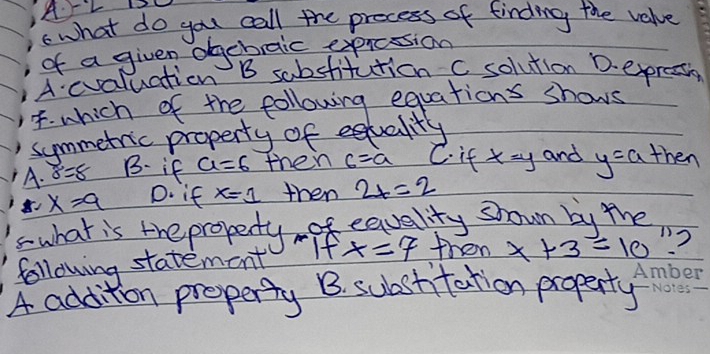 6 what do you call the process of finding the value
of a given algebraic expression
A. evaluation B substitution C solution D. expression
7. which of the following equations shows
symmetric property of equality
A. 8=8 B. if a=6 then 6=a C. if x=y and y=a then
x=a D. if x=1 then 2x=2
what is the property of equality shown by the
following statement "if x=7 then x+3=10"?
A addition property B. substitution property
Amber
Notes